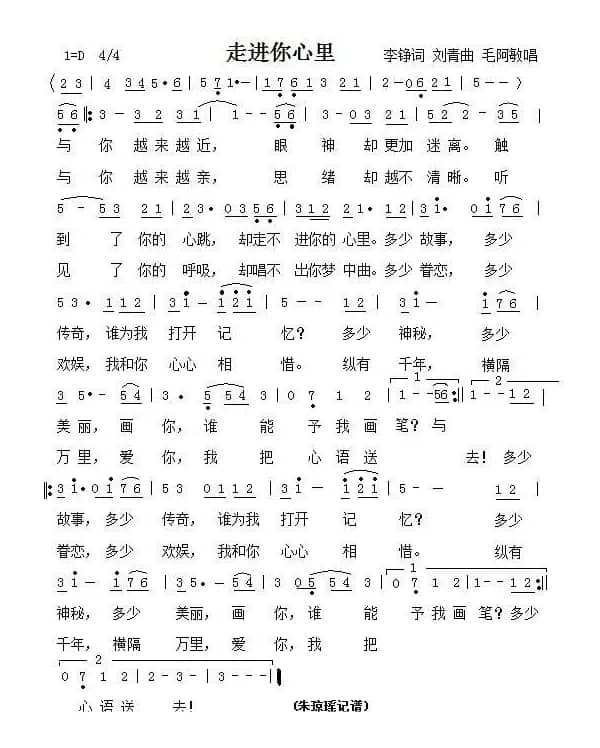 走进你心里
1=D 4/4 李铮词 刘青曲 毛阿敏唱
〈 2 3 | 4 3 4 5 · 6 | 5 7 1 · · | 1 7 6 1 3 2 1 | 5 1 2 | 5 - - 〉
5 6 ‖: 3 - 3 2 3 1 | 1 - - 5 6 | 3 - 0 3 2 1 | 5 2 2 - 3 |
与 你 越 来 越 近， 眼 神 却 更加 迷 离。 触
与 你 越 来 越 亲， 思 绪 却 越不 清 晰。 听
5 - 5 3 2 1 | 2 3 · 0 5 3 | 2 2 1 2 1 6 | 3 i · 0 i 7 6 |
到 了 你的 心跳， 却走不 进你的 心里。多少 故事， 多少
见 了 你的 呼吸， 却唱不 出你梦 中曲。多少 眷恋， 多少
5 3 · 1 1 2 | 3 i - i 2 i | 5 · 1 2 | 3 i - i 7 6 |
传奇， 谁为我 打开 记 忆？ 多少 神秘， 多少
欢娱， 我和你 心心 相 惜。 纵有 千年， 横隔
3 5 · - 5 4 | 3 · 5 5 4 | 3 0 7 1 2 | 1 - - 5 6 :‖ 1 - - 1 2 |
美丽， 画 你， 谁 能 予 我 画 笔？ 与
万里， 爱 你， 我 把 心 语 送 去！ 多少
‖: 3 i · 0 i 7 6 | 5 3 0 1 1 2 | 3 i - i 2 i | 5 - - 1 2 |
故事， 多少 传奇， 谁为我 打开 记 忆？ 多少
眷恋， 多少 欢娱， 我和你 心心 相 惜。 纵有
3 i · i 7 6 | 3 5 · - 5 4 | 3 0 5 5 4 | 0 7 1 2 | 1 - - 1 2 :‖
神秘， 多少 美丽， 画 你， 谁 能 予 我 画 笔？多少
千年， 横隔 万里， 爱 你， 我 把
0 7 1 2 | 2 - 3 - | 3 - - - ‖
心 语 送 去！ (朱琼瑶记谱)